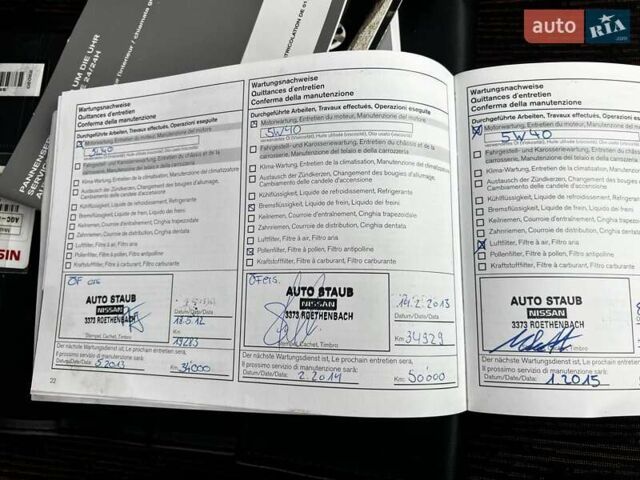 auto RIA.com
UM DIE UHR
24/24H
Wartungsnachweise
Quittances d'entretien
Conferma della manutenzione
Durchgeführte Arbeiten, Travaux effectués, Operazioni eseguite
Motorwartung, Entretien du moteur, Manutenzione del motore
5W40
Fahrgestell- und Karosseriewartung, Entretien du châssis et de la
carrosserie, Manutenzione del telaio e della carrozzeria
Klima-Wartung, Entretien de la climatisation, Manutenzione del climatizzatore
Austausch der Zündkerzen, Changement des bougies d'allumage,
Cambiamento delle candele d'accensione
Kühlflüssigkeit, Liquide de refroidissement, Refrigerante
Bremsflüssigkeit, Liquide de frein, Liquido dei freni
Keilriemen, Courroie d'entraînement, Cinghia trapezoidale
Zahnriemen, Courroie de distribution, Cinghia dentata
Luftfilter, Filtre à air, Filtro aria
Pollenfilter, Filtre à pollen, Filtro antipolline
Kraftstofffilter, Filtre à carburant, Filtro carburante
AUTO STAUB
NISSAN
3373 ROETHENBACH
Stempel, Cachet, Timbro
18.5.12
Datum/Date/Data
19283
Km
Der nächste Wartungsdienst ist, Le prochain entretien sera,
Il prossimo servizio di manutenzione sarà:
Datum/Date/Data: 5.2013 Km: 34000
22
Wartungsnachweise
Quittances d'entretien
Conferma della manutenzione
Durchgeführte Arbeiten, Travaux effectués, Operazioni eseguite
Motorwartung, Entretien du moteur, Manutenzione del motore
5W40
Fahrgestell- und Karosseriewartung, Entretien du châssis et de la
carrosserie, Manutenzione del telaio e della carrozzeria
Klima-Wartung, Entretien de la climatisation, Manutenzione del climatizzatore
Austausch der Zündkerzen, Changement des bougies d'allumage,
Cambiamento delle candele d'accensione
Kühlflüssigkeit, Liquide de refroidissement, Refrigerante
Bremsflüssigkeit, Liquide de frein, Liquido dei freni
Keilriemen, Courroie d'entraînement, Cinghia trapezoidale
Zahnriemen, Courroie de distribution, Cinghia dentata
Luftfilter, Filtre à air, Filtro aria
Pollenfilter, Filtre à pollen, Filtro antipolline
Kraftstofffilter, Filtre à carburant, Filtro carburante
AUTO STAUB
NISSAN
3373 ROETHENBACH
Stempel, Cachet, Timbro
14.2.2013
Datum/Date/Data
34929
Km
Der nächste Wartungsdienst ist, Le prochain entretien sera,
Il prossimo servizio di manutenzione sarà:
Datum/Date/Data: 2.2014 Km: 50000
Wartungsnachweise
Quittances d'entretien
Conferma della manutenzione
Durchgeführte Arbeiten, Travaux effectués, Operazioni eseguite
Motorwartung, Entretien du moteur, Manutenzione del
5W40
Fahrgestell- und Karosseriewartung, Entretien du
carrosserie, Manutenzione del telaio e della carrozzeria
Klima-Wartung, Entretien de la climatisation,
Austausch der Zündkerzen, Changement des bougies
Cambiamento delle candele d'accensione
Kühlflüssigkeit, Liquide de refroidissement, Refrigerante
Bremsflüssigkeit, Liquide de frein, Liquido dei freni
Keilriemen, Courroie d'entraînement, Cinghia
Zahnriemen, Courroie de distribution, Cinghia dentata
Luftfilter, Filtre à air, Filtro aria
Pollenfilter, Filtre à pollen, Filtro antipolline
Kraftstofffilter, Filtre à carburant, Filtro carburante
AUTO STAUB
NISSAN
3373 ROETHENBACH
Timbro
Der nächste Wartungsdienst ist, Le prochain entretien
Il prossimo servizio di manutenzione sarà:
Datum/Date/Data: 1.2015